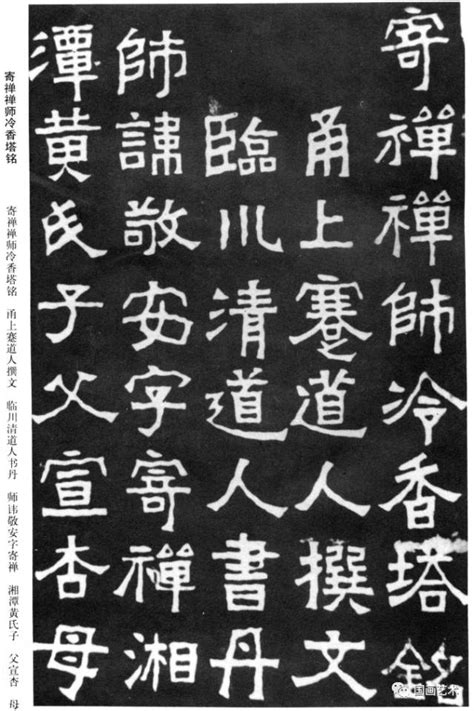 寄禪禪師冷香塔銘
甬上蹇道人撰文
臨川清道人書丹
師諱敬安字寄禪湘
潭黃氏子父宣杏母
寄禅禅师冷香塔铭
寄禅禅师冷香塔铭 甬上蹇道人撰文 临川清道人书丹 师讳敬安字寄禅 湘潭黄氏子 父宣杏 母
国画艺术